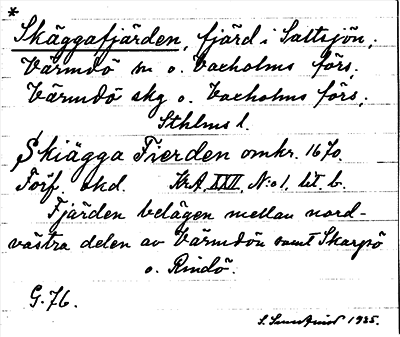 *
Skäggafjärden, fjärd i Saltsjön,
Värmdö m o. Vaxholms förs,
Värmdö skg o. Vaxholms förs,
Sthlms l.
Skiägga Fierden omkr. 1670.
Förf. okd. KrA, XXVI, N:o 1, lit. b.
Fjärden belägen mellan nord-
västra delen av Värmdön samt Skarpö
o. Rindö.
G.76.
S. 1925.